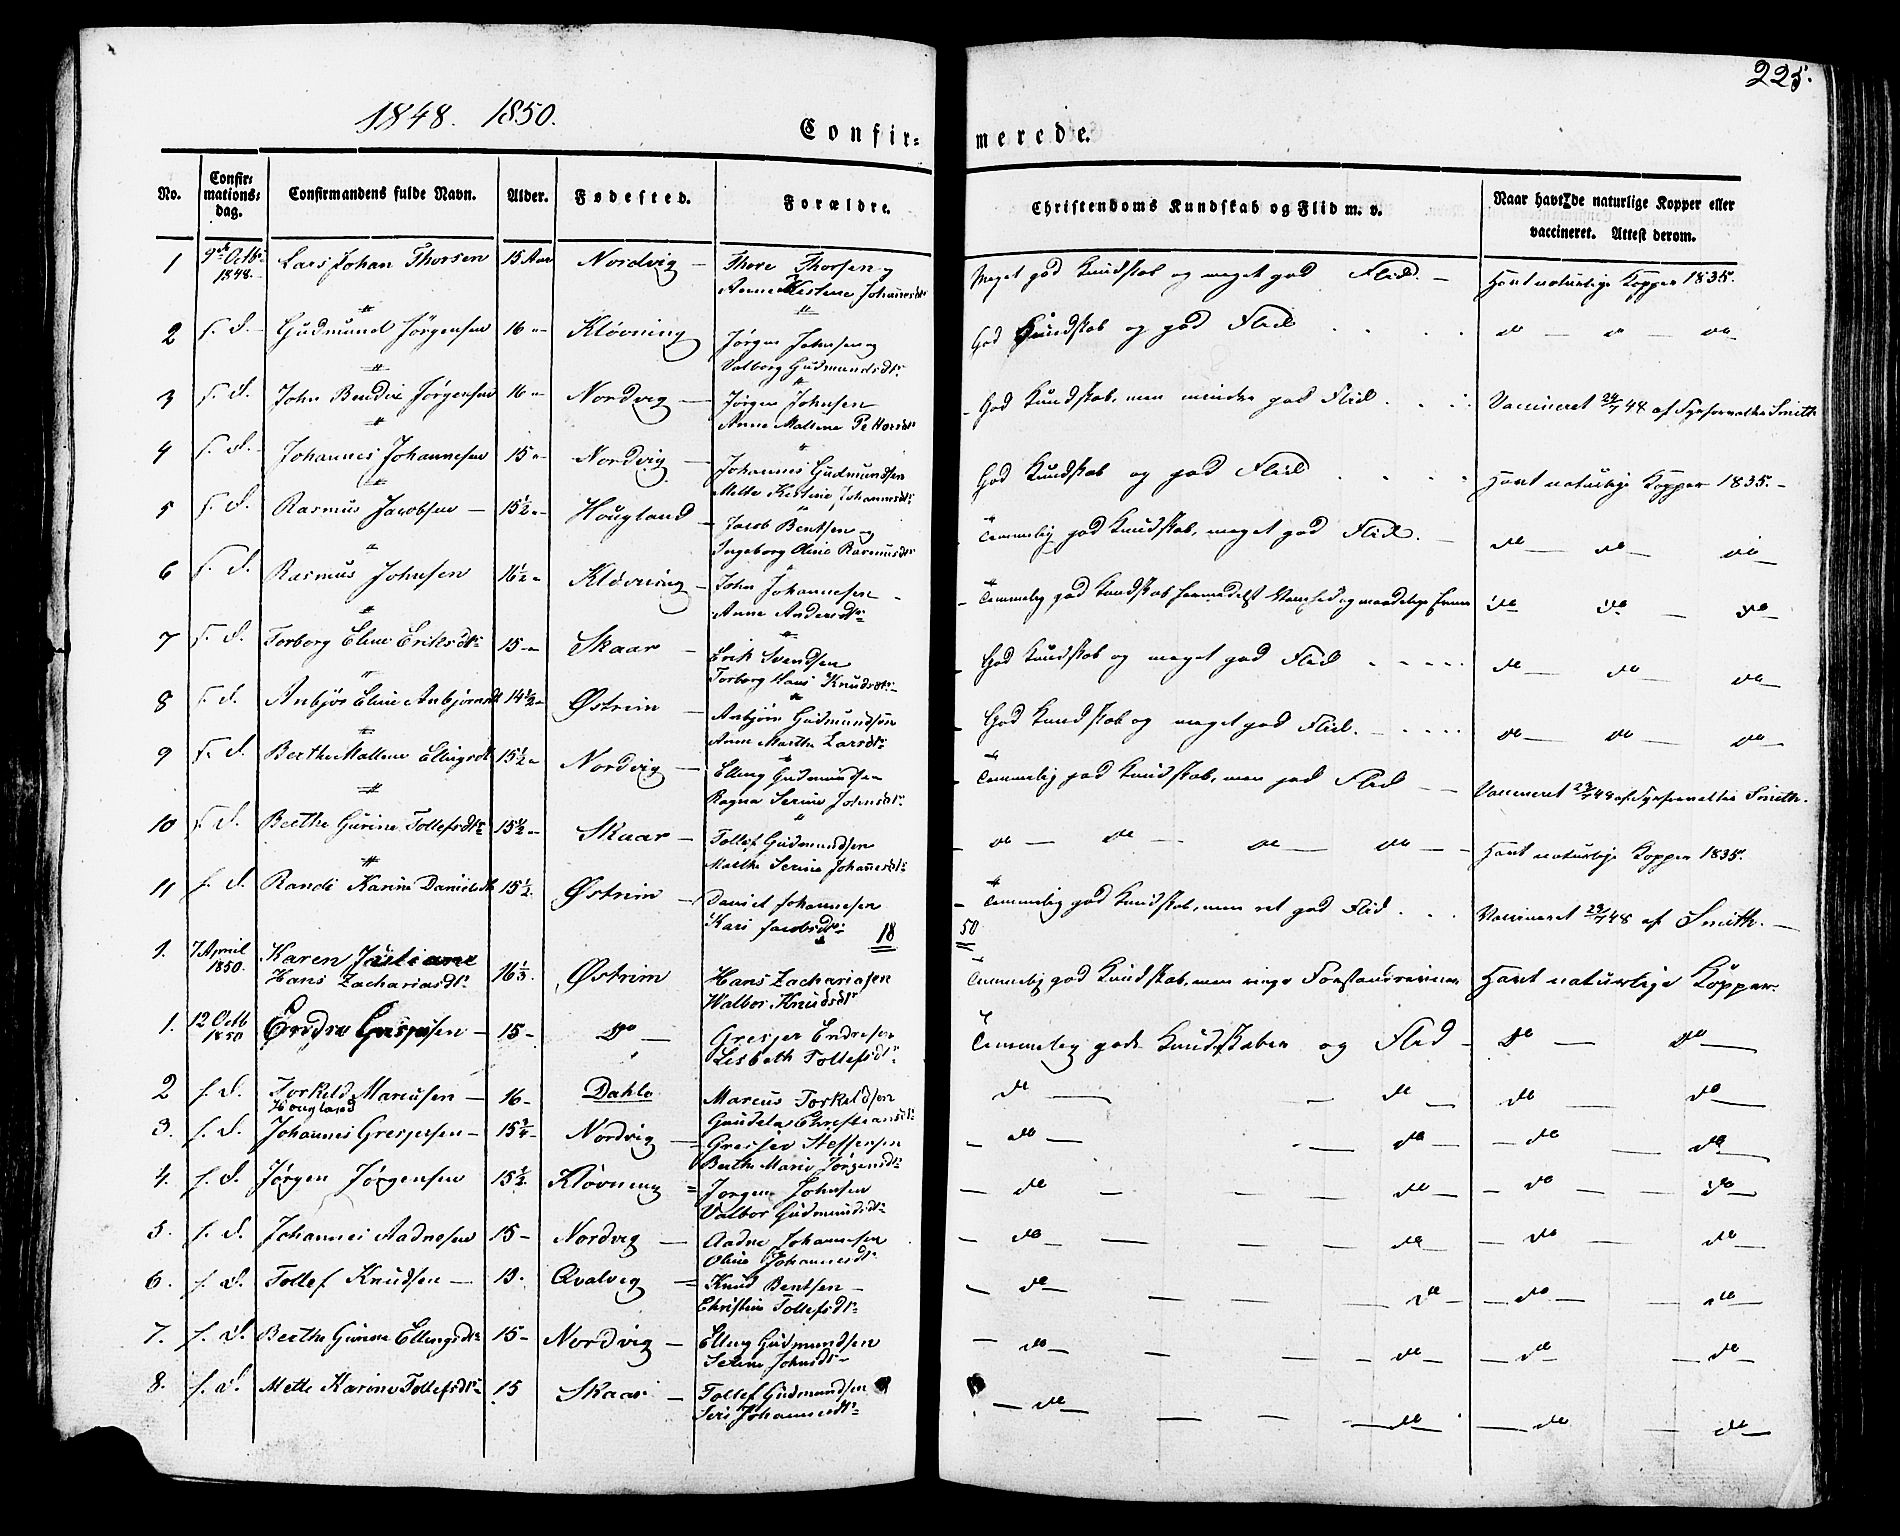 225.
1848. 1850.
Confir=
merede.
No. Confir=mations=dag. Confirmandens fulde Navn. Alder. Fødested. Forældre. Christendoms Kundskab og Flid m. v. Naar havt de naturlige Kopper eller vaccineret. Attest derom.
1 9de Octbr 1848. Lars Johan Thorsen 15 Aar Nordvig — Thore Thorsen og Meget god Kundskab og meget god Flid. — Havt naturlige Kopper 1835.
Anne Kistene Johannesdtr
2 s. d. Gudmund Jörgensen 16 — Klövning Jørgen Johnsen og God Kundskab og god Flid do — do — do
Valborg Gudmundsdtr
3 s. d. John Bendix Jörgensen 16 — Nordvig — Jørgen Johnsen God Kundskab, men mindre god Flid. Vaccineret 24/7 48 af Smith
Anne Mallene Pettersdtr
4 s. d. Johannes Johannesen 15 — Nordvig — Johannes Gudmundsen God Kundskab og god Flid Havt naturlige Kopper 1835. —
Mette Kistine Johannesdtr
5 s. d. Rasmus Jacobsen — 15½ — Hougland — Jacob Bentsen og Temmelig god Kundskab, meget god Flid. — do — do — do
Ingeborg Oline Rasmusdtr
6 s. d. Rasmus Johnsen 16½ — Klövning — John Johannesen — Temmelig god Kundskab formedelst og maadelige do do — do —
Anne Andersdtr
7 s. d. Torborg Eline Eriksdtr 15 — Skaar — Erik Svendsen God Kundskab og meget god Flid do — do — do —
Torborg Knudsdtr
8 s. d. Anbjör Eline Anbjörnsd 14½ — Østrim — Anbjörn Gudmundsen God Kundskab og meget god Flid. do — do — do
Anne Marthe Larsdtr
9 s. d. Berthe Mallene Ellingsdt 15½ — Nordvig — Elling Gudmundsen Temmelig god Kundskab, men god Flid — Vaccineret 24/7 48 af Smith.
Ragna Serine Johnsdtr
10 s. d. Berthe Gurine Tollefsdtr 15½ — Skaar — Tollef Gudmundsen — do — do — do — do — Havt naturlige Kopper 1835.
Marthe Serine Johannesdtr
11 s. d. Randi Karine Danielsdt 15½. Østrim — Daniel Johannesen Temmelig god Kundskab, men ret god Flid. Vaccineret 24/7 48 af Smith. —
Kari Jacobsdtr
18 50
1. 7 April 1850. Karen Justiane 16⅓. Østrim Hans Zachariasen Temmelig god Kundskab, men ringe Havt naturlige Kopper.
Hans Zachariasdtr Walbor Knudsdtr
1. 12 Octb 1850 Endre Gresjersen — 15 — do — Gresjer Endresen Temmelig gode Kundskaber og Flid — do — do —
Lisbeth Tollefsdtr
2 s. d. Torkild Marcusen — 16 — Dahle Marcus Torkeldsen do — — do — do — do —
Hougland Gundela Christiansdtr
3. s. d. Johannes Gresjersen — 15¾ — Nordvig — Gresjer Steffensen — do — — do — do — do —
Berthe Marie Jørgensdtr
4. s. d. Jørgen Jørgensen 15½. Klövning = Jørgen Johnsen — do — — — do — — do — — do —
Valbor Gudmundsdtr
5. s. d. Johannes Aadnesen 15 — Nordvig — Aadne Johannesen — do — — — do — — do — — do —
Oline Johannesdtr
6. s. d. Tollef Knudsen — 19. Qvalvig = Knud Bentsen — — do — — — do — — do — — do —
Christine Tollefsdtr
7. s. d. Berthe Gurine Ellingsdtr 15 — Nordvig — Elling Gudmundsen — do — — — do — — do — — do —
Serine Johnsdtr
8. s. d. Mette Karine Tollefsdtr 15 Skaar — Tollef Gudmundsen — do — — — do — — do — do —
Seri Johannesdtr